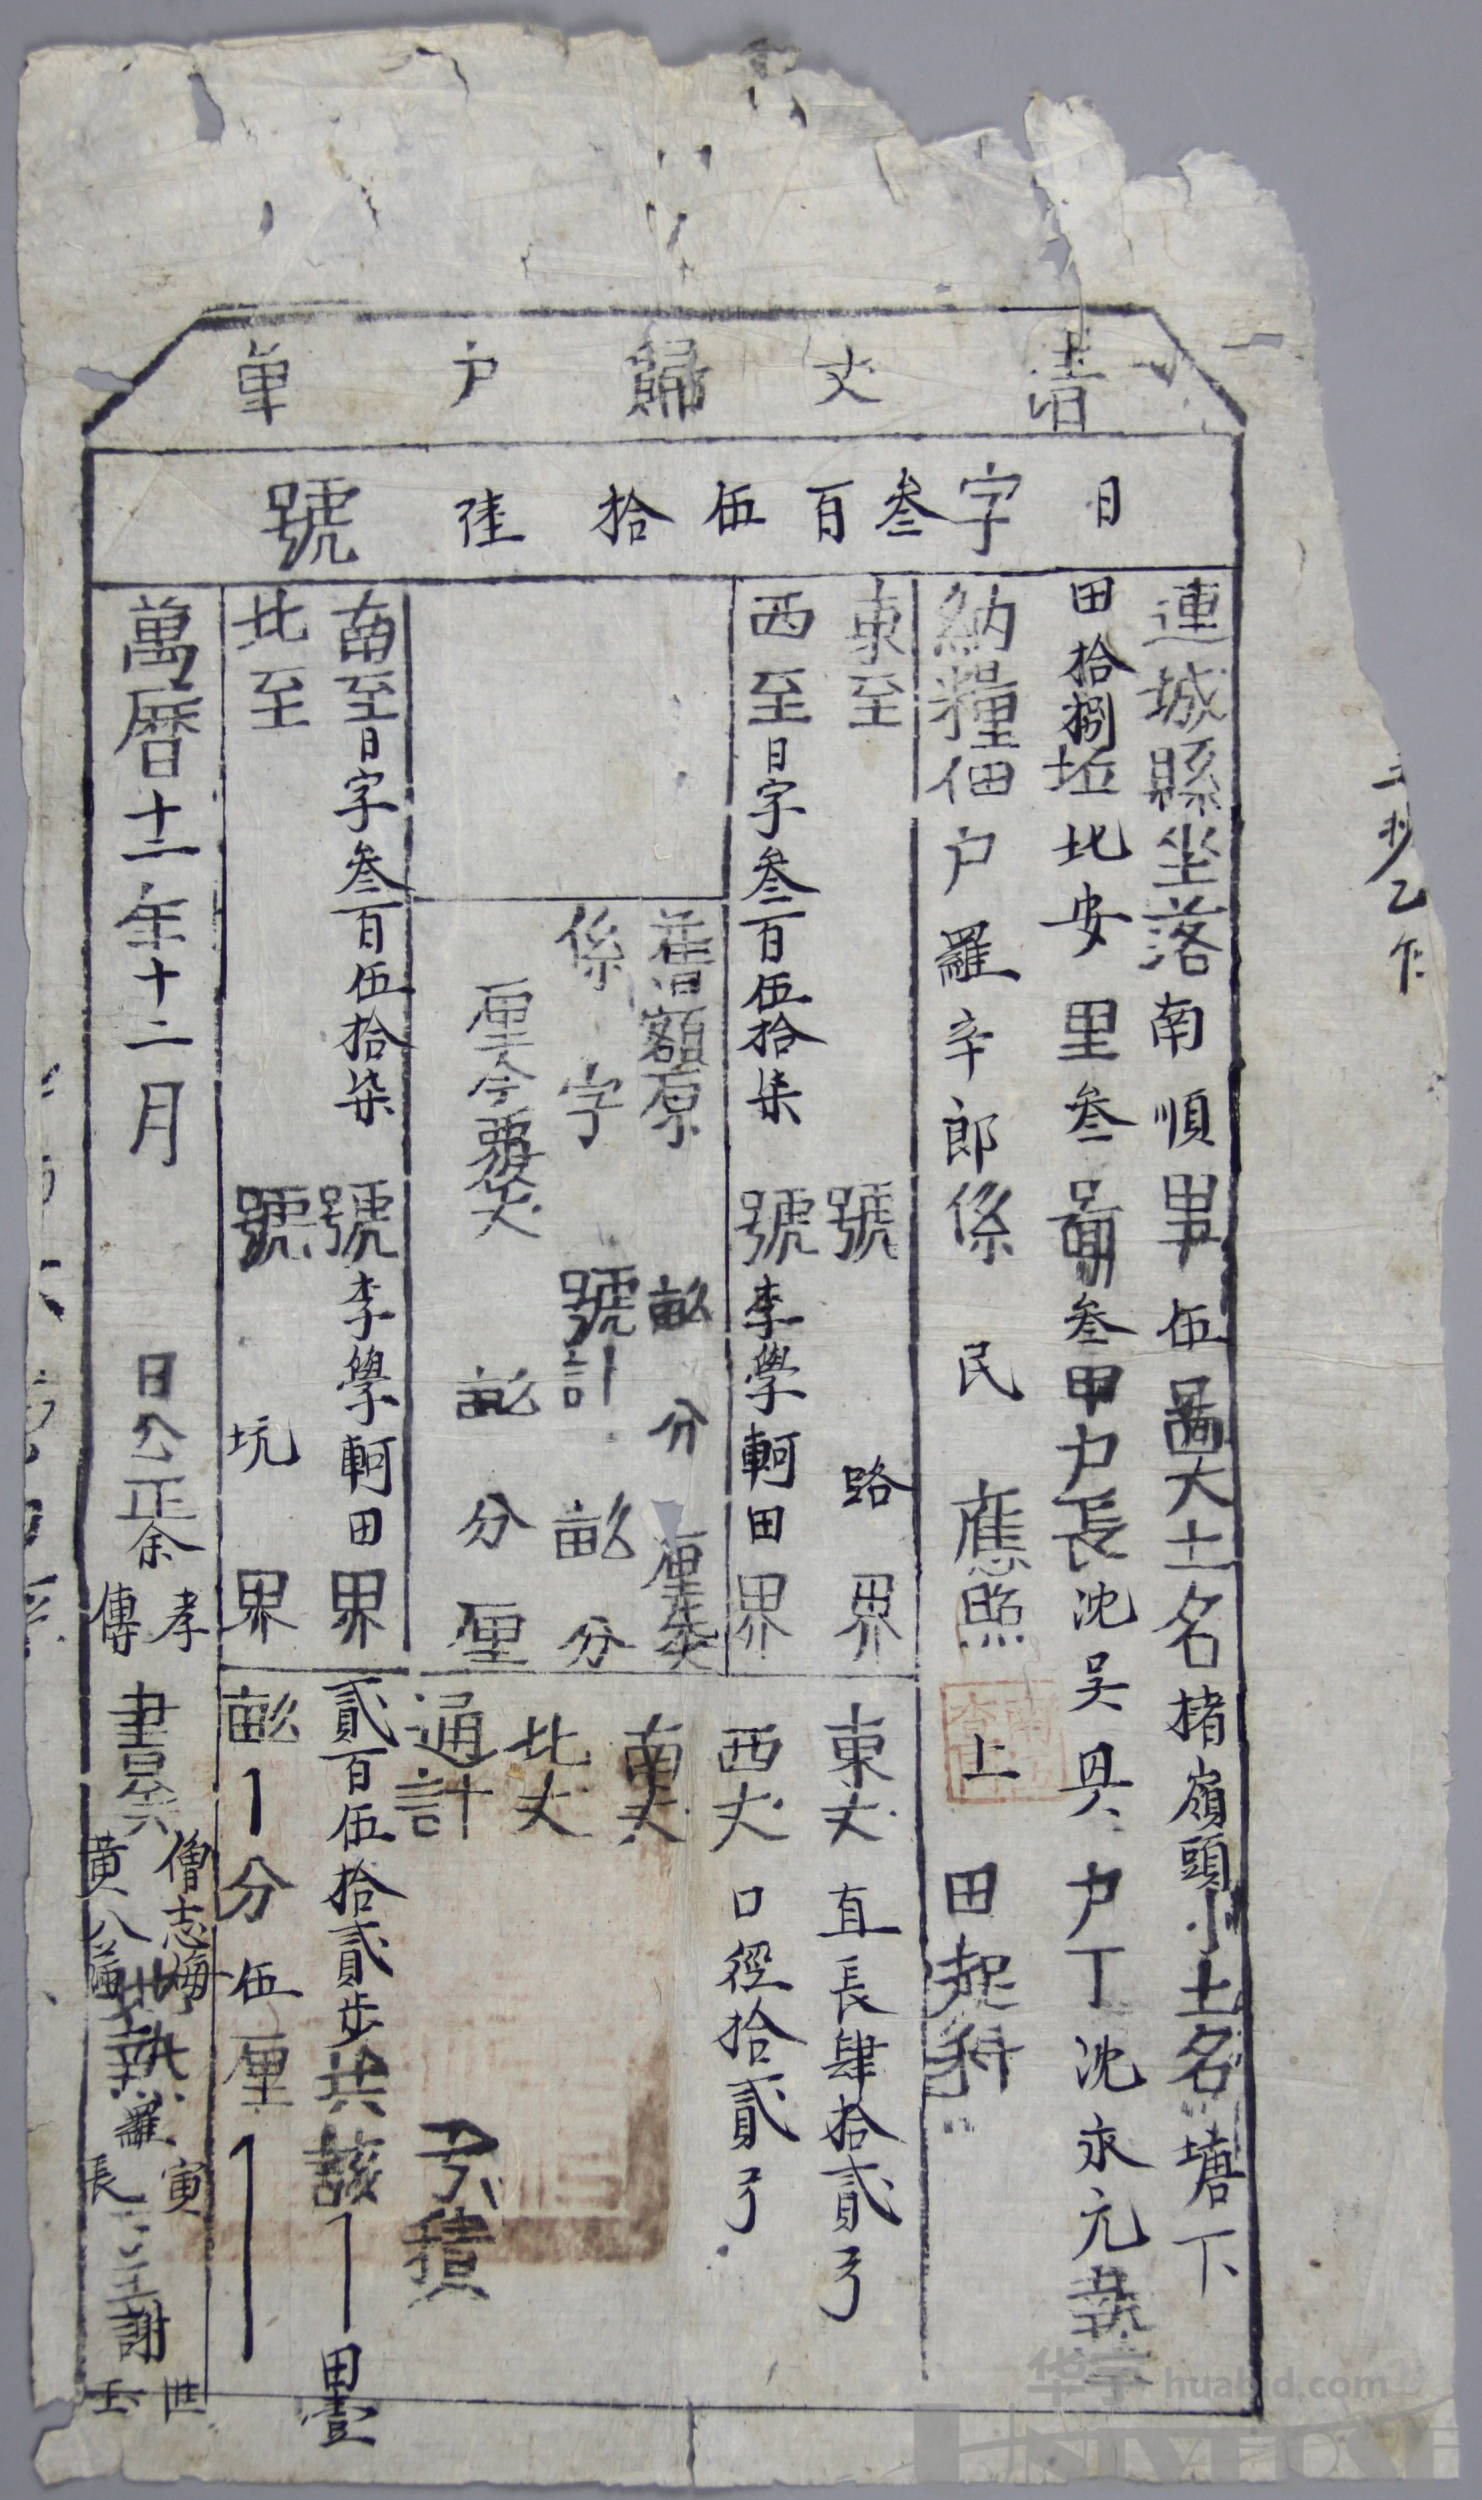 清丈歸户单
日字叁百伍拾陸號
連城縣坐落南順里伍啚大土名猪嶺頭小土名塘下
田拾捌坵北安里叁啚叁甲户長沈吴具户丁沈永元
納糧佃户羅辛郎係民應照上田起科
東至號路界
西至日字叁百伍拾柒號李學軻田界
舊額原畝分厘
係字號計畝分
厘今覆丈畝分厘
南至日字叁百伍拾柒號李學軻田界
北至號坑界
東丈直長肆拾貳弓
西丈口徑拾貳弓
南丈
北丈
通計積
貳百伍拾貳步共該田壹
畝分伍厘
萬曆十二年十二月日公正余孝傳書筭僧志梅黄八執羅寅長主謝世玉
华宇 huabid.com